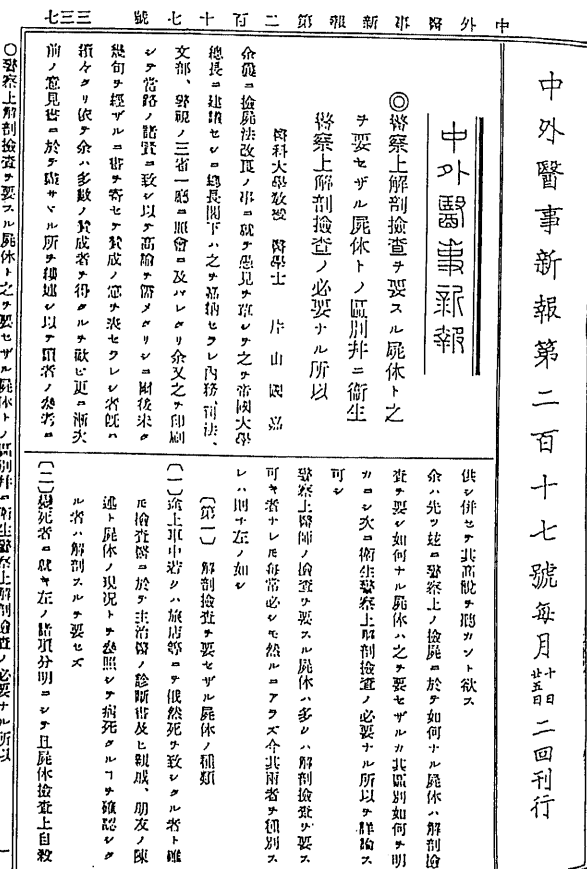 中外醫事新報第二百十七號 三三七
中外醫事新報第二百十七號每月十日廿五日二回刊行
中外醫事新報
◎警察上解剖撿査チ要スル屍体ト之
チ要セザル屍体トノ區別幷ニ衞生
警察上解剖撿査ノ必要ナル所以
醫科大學敎授 醫學士 片山國嘉
余曩ニ撿屍法改良ノ事ニ就テ愚見チ草シテ之チ帝國大學
總長ニ建議セシニ總長閣下ハ之チ嘉納セラレ內務、司法、
文部、警視ノ三省一廳ニ照會ニ及バレタリ余又之チ印刷
シテ當路ノ諸賢ニ致シ以テ高諭チ需メタリシニ爾後未タ
幾旬チ經ザルニ書チ寄セテ賛成ノ意チ表セラレシ者旣ニ
須々タリ依テ余ハ多數ノ賛成者チ得タルチ歡ビ更ニ漸次
前ノ意見書ニ於テ盡サヾル所チ縷述シ以テ讀者ノ參考ニ
供シ併セテ其高說チ聽カント欲ス
余ハ先ヅ玆ニ警察上ノ撿屍ニ於テ如何ナル屍体ハ解剖撿
査チ要シ如何ナル屍体ハ之チ要セザルカ其區別如何チ明
カニシ次ニ衞生警察上解剖撿査ノ必要ナル所以チ詳論ス
可シ
警察上醫師ノ撿査チ要スル屍体ハ多シハ解剖撿査チ要ス
可キ者ナレモ每常必シモ然ルニアラズ今其兩者チ種別ス
レハ則チ左ノ如シ
〔第一〕 解剖撿査チ要セザル屍体ノ種類
〔一〕途上車中若クハ旅店等ニテ俄然死チ致シタル者ト雖
モ撿査醫ニ於テ主治醫ノ診斷書及ヒ親戚、朋友ノ陳
述ト屍体ノ現況トチ參照シテ病死タルコチ確認シタ
ル者ハ解剖スルチ要セズ
〔二〕變死者ニ就キ左ノ諸項分明ニシテ且屍体撿査上自殺
〇警察上解剖撿査チ要スル屍体ト之チ要セザル屍体トノ區別幷ニ衞生警察上解剖撿査ノ必要ナル所以 一